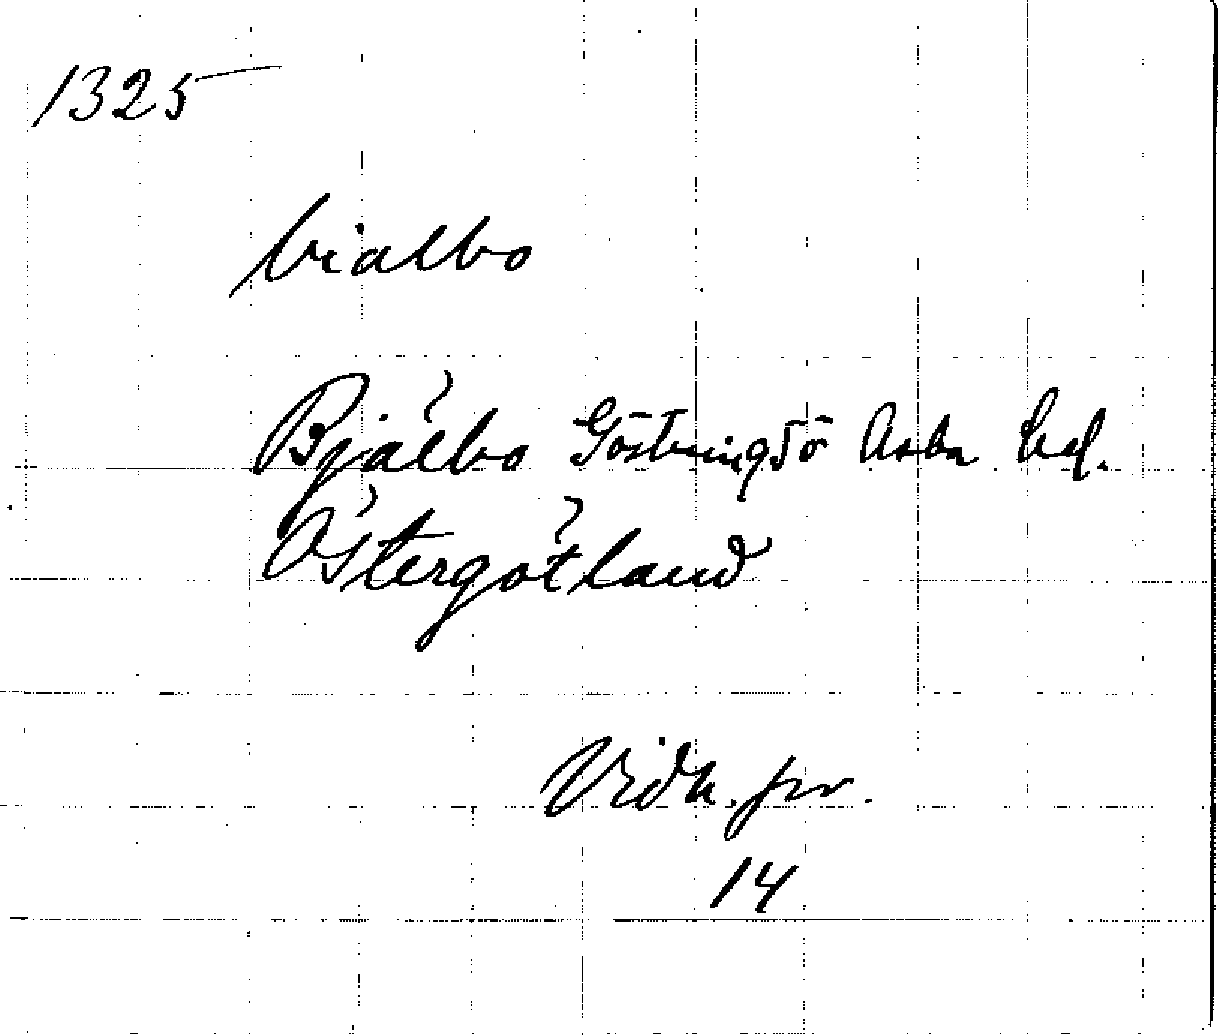 1325
bialbo
Bjälbo Göstringsö Aska hd.
Östergötland
Vidh. pr.
14